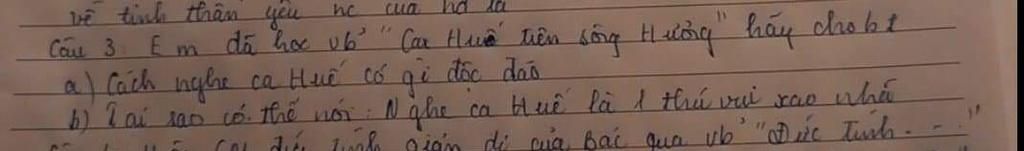 về tinh thần yêu nc của nd ta
Câu 3: Em đã học vb "Ca Huế trên sông Hương" hãy cho bt
a) Cách nghe ca Huế có gì độc đáo
b) Tại sao có thể nói: Nghe ca Huế là 1 thú vui tao nhã
giản dị của Bác qua vb "Đức tính ..."